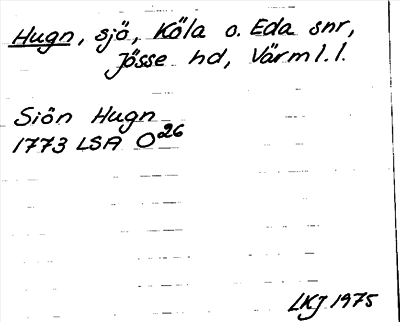 Hugn, sjö, Köla o. Eda snr,
Jösse hd, Värml.l.
Siön Hugn
1773 LSA O26
LKJ 1975